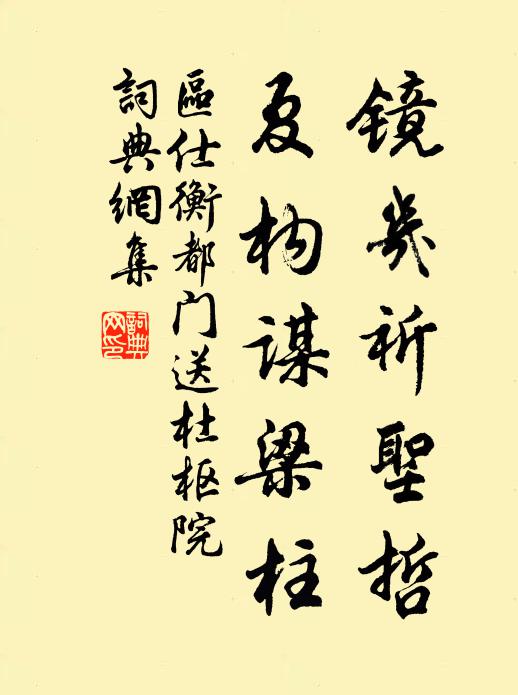 镜幾祈聖哲
夏构謀梁柱
區仕衡都门送杜枢院
詞典網集
詞典网印